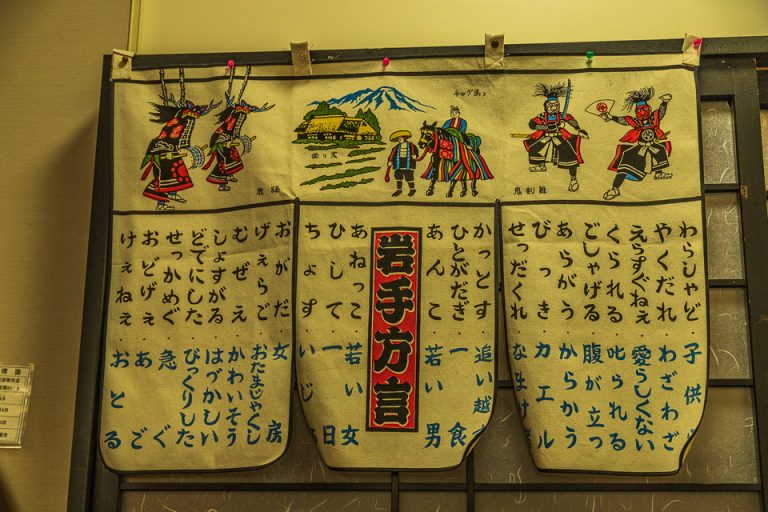 鬼剣舞
チャグ馬コ
曲り家
鹿踊
わらしゃど・子供
やくだれ・わざわざ
えらすぐねえ・愛らしくない
くられる・叱られる
ごしゃげる・腹が立つ
あらがう・からかう
びっき・カエル
せっだくれ・なまけ
かっとす・追い越す
ひとがだぎ・一食
あんこ・若い男
岩手方言
あねっこ・若い女
ひして・一日
ちょす・いじる
おがだ・女房
げぇらご・おたまじゃくし
むぜえ・かわいそう
しょすがる・はづかしい
どでにした・びっくりした
せっかめぐ・急ぐ
おどげぇ・あご
けぇねぇ・おとる